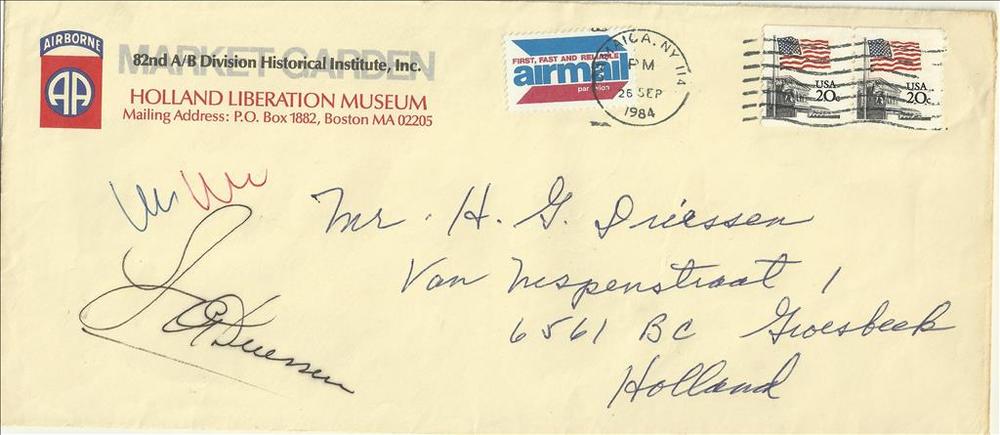 AIRBORNE
AA
MARKET GARDEN
82nd A/B Division Historical Institute, Inc.
HOLLAND LIBERATION MUSEUM
Mailing Address: P.O. Box 1882, Boston MA 02205
FIRST, FAST AND RELIABLE
airmail
par avion
JAMAICA, NY 114
PM
26 SEP
1984
USA
20c
USA
20c
Mr. H. G. Driessen
Van Nispenstraat 1
6561 BC Groesbeek
Holland
Driessen